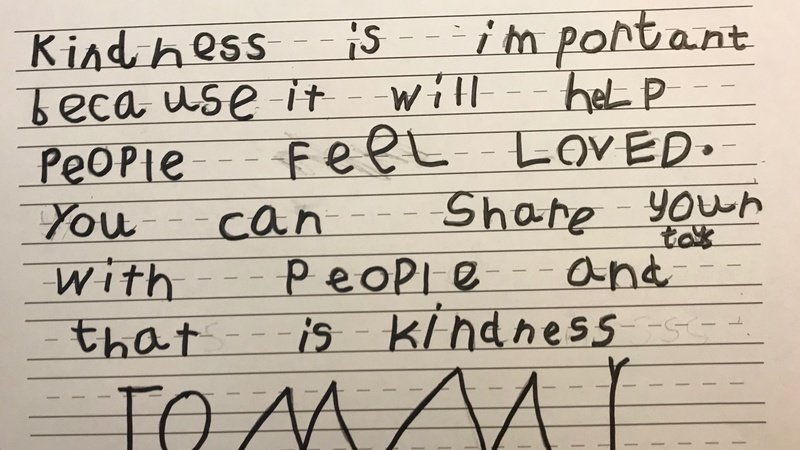 Kindness is important
because it will heLP
PEOPlE FEEL LOVED.
You can Share your
toys
with PEOPlE and
that is kindness
TOMMY